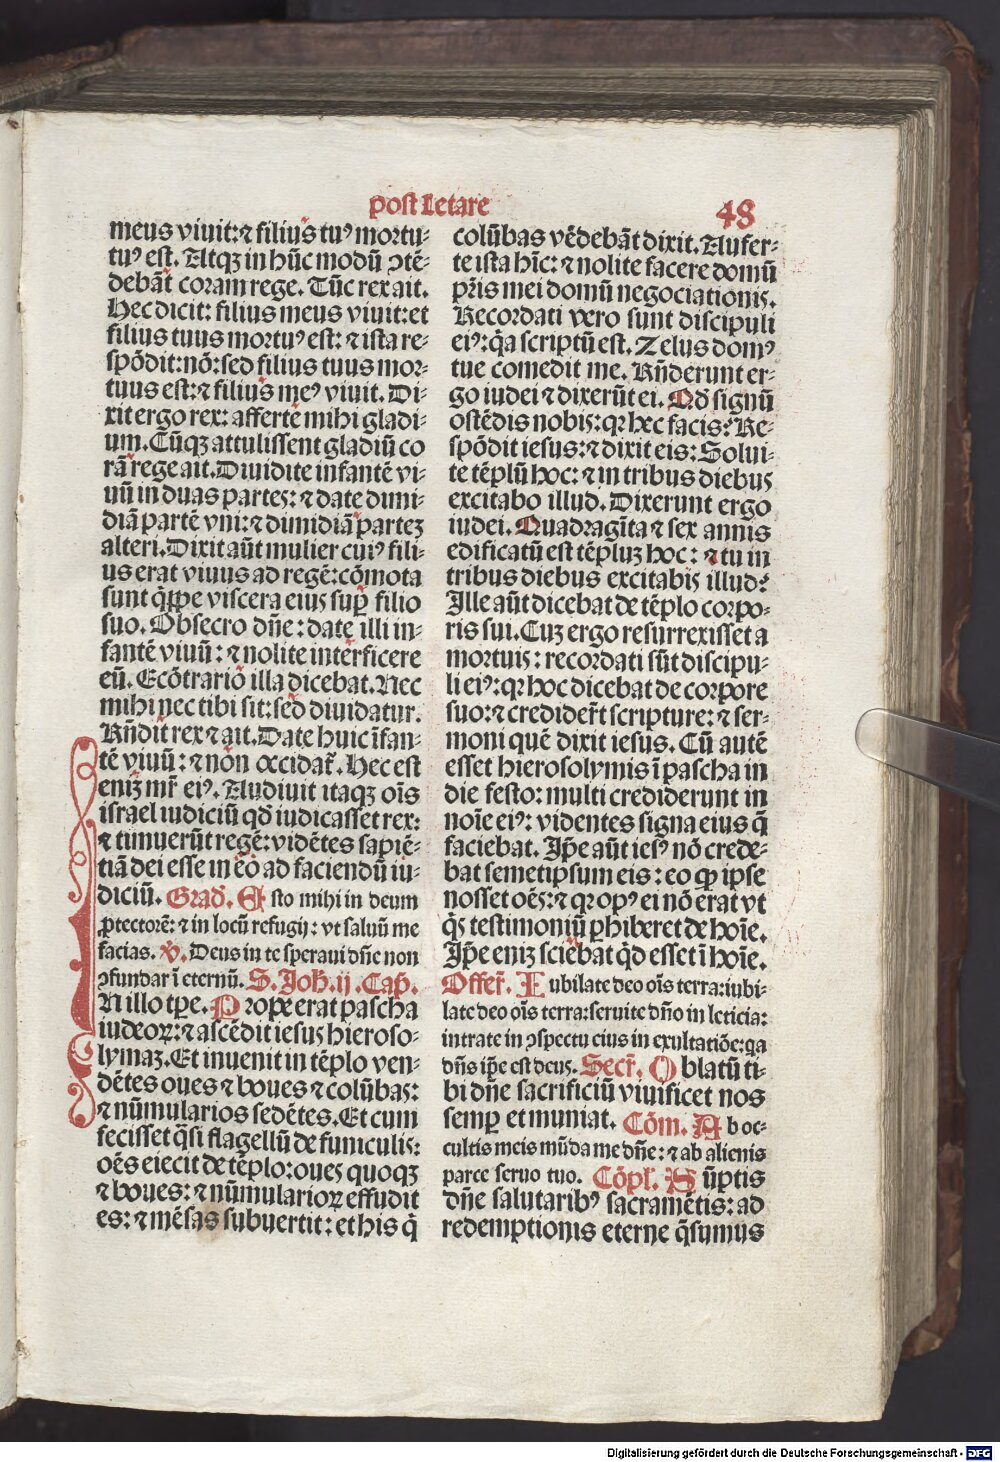 post Letare
48
meus viuit:⁊ filius tuꝰ mortu-
tuꝰ est. Atqꝫ in hūc modū ↄtē-
debāt coram rege. Tūc rex ait.
Hec dicit: filius meus viuit: et
filius tuus mortuꝰ est: ⁊ ista re-
spōdit: nō: sed filius tuus mor-
tuus est: ⁊ filius meꝰ viuit. Di-
xit ergo rex: afferte mihi gladi-
um. Cūqꝫ attulissent gladiū co
rā rege ait. Diuidite infantē vi-
uū in duas partes: ⁊ date dimi-
diā partē vni: ⁊ dimidiā parteꝫ
alteri. Dixit aūt mulier cuiꝰ fili-
us erat viuus ad regē: cōmota
sunt q̄ppe viscera eius sup̄ filio
suo. Obsecro dn̄e: date illi in-
fantē viuū: ⁊ nolite interficere
eū. Ecōtrario illa dicebat. Nec
mihi nec tibi sit: sed diuidatur.
Rn̄dit rex ⁊ ait. Date huic īfan-
tē viuū: ⁊ non occidat̄. Hec est
enim mr̄ eiꝰ. Audiuit itaqꝫ oīs
israel iudiciū qd̄ iudicasset rex:
⁊ timuerūt regē: vidētes sapiē-
tiā dei esse in eo ad faciendū iu-
diciū. Grad̄. Esto mihi in deum
ꝓtectorē: ⁊ in locū refugij: vt saluū me
facias. v̄. Deus in te speraui dn̄e non
ↄfundar ī eternū. S. Joh̄. ij. Cap̄.
In illo tp̄e. Prope erat pascha
iudeoꝝ: ⁊ ascēdit iesus hieroso-
lymaꝫ. Et inuenit in tēplo ven-
dētes oues ⁊ boues ⁊ colūbas:
⁊ nūmularios sedētes. Et cum
fecisset q̄si flagellū de funiculis:
oēs eiecit de tēplo: oues quoqꝫ
⁊ boues: ⁊ nūmularioꝝ effudit
es: ⁊ mēsas subuertit: et his q̄
colūbas vēdebāt dixit. Aufer-
te ista hīc: ⁊ nolite facere domū
pr̄is mei domū negociationis.
Recordati vero sunt discipuli
eiꝰ: q̄a scriptū est. Zelus domꝰ
tue comedit me. Rn̄derunt er-
go iudei ⁊ dixerūt ei. Qd̄ signū
ostēdis nobis: qꝛ hec facis? Re-
spōdit iesus: ⁊ dixit eis: Solui-
te tēplū hoc: ⁊ in tribus diebus
excitabo illud. Dixerunt ergo
iudei. Quadragīta ⁊ sex annis
edificatū est tēpluꝫ hoc: ⁊ tu in
tribus diebus excitabis illud?
Ille aūt dicebat de tēplo corpo-
ris sui. Cuꝫ ergo resurrexisset a
mortuis: recordati sūt discipu-
li eiꝰ: qꝛ hoc dicebat de corpore
suo: ⁊ credider̄t scripture: ⁊ ser-
moni quē dixit iesus. Cū autē
esset hierosolymis ī pascha in
die festo: multi crediderunt in
noīe eiꝰ: videntes signa eius q̄
faciebat. Ip̄e aūt iesꝰ nō crede-
bat semetipsum eis: eo ꝙ ipse
nosset oēs: ⁊ qꝛ opꝰ ei nō erat vt
q̄s testimoniū ꝑhiberet de hoīe.
Ip̄e enim sciebat qd̄ esset ī hoīe.
Offer̄. Iubilate deo oīs terra: iubi-
late deo oīs terra: seruite dn̄o in leticia:
intrate in ↄspectu eius in exultatiōe: qa
dn̄s ip̄e est deus. Secr̄. Oblatū ti-
bi dn̄e sacrificiū viuificet nos
semp̄ et muniat. Cōm. Ab oc-
cultis meis mūda me dn̄e: ⁊ ab alienis
parce seruo tuo. Cōpl̄. Sūptis
dn̄e salutaribꝰ sacramētis: ad
redemptionis eterne q̄sumus
Digitalisierung gefördert durch die Deutsche Forschungsgemeinschaft - DFG